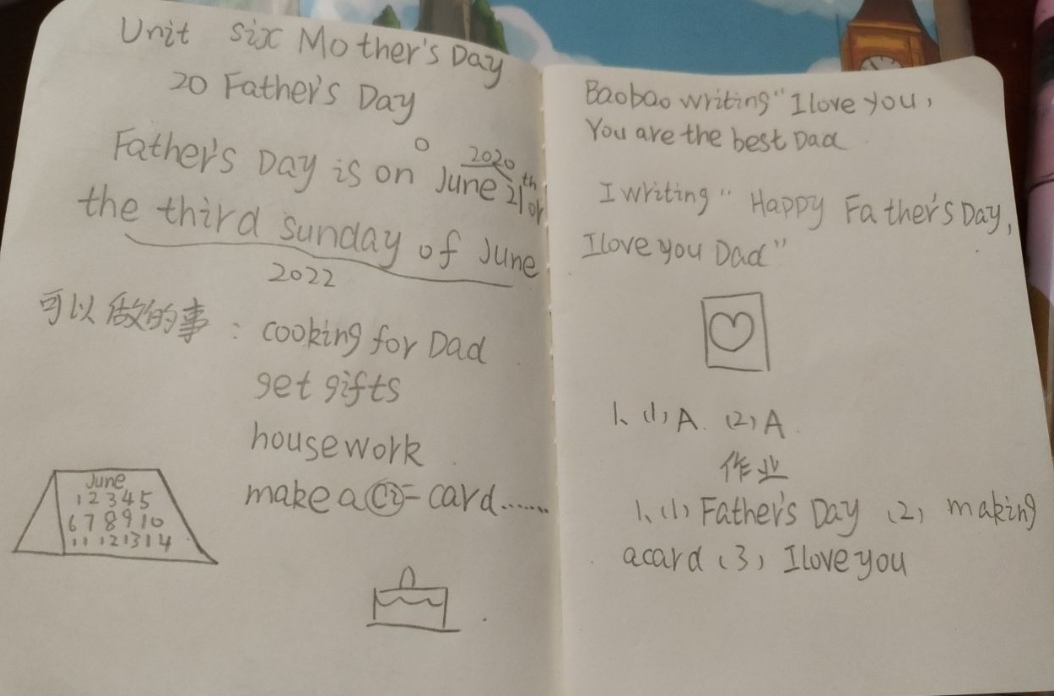 Unit six Mother's Day
20 Father's Day
Father's Day is on June 2020 21th or
the third sunday of June
2022
可以做的事: cooking for Dad
get gifts
housework
make a = card......
June
1 2 3 4 5
6 7 8 9 10
11 12 13 14
Baobao writing "I love you,
You are the best Dad
I writing " Happy Father's Day,
I love you Dad"
1、(1) A. (2) A
作业
1、(1) Father's Day (2) making
a card (3) I love you